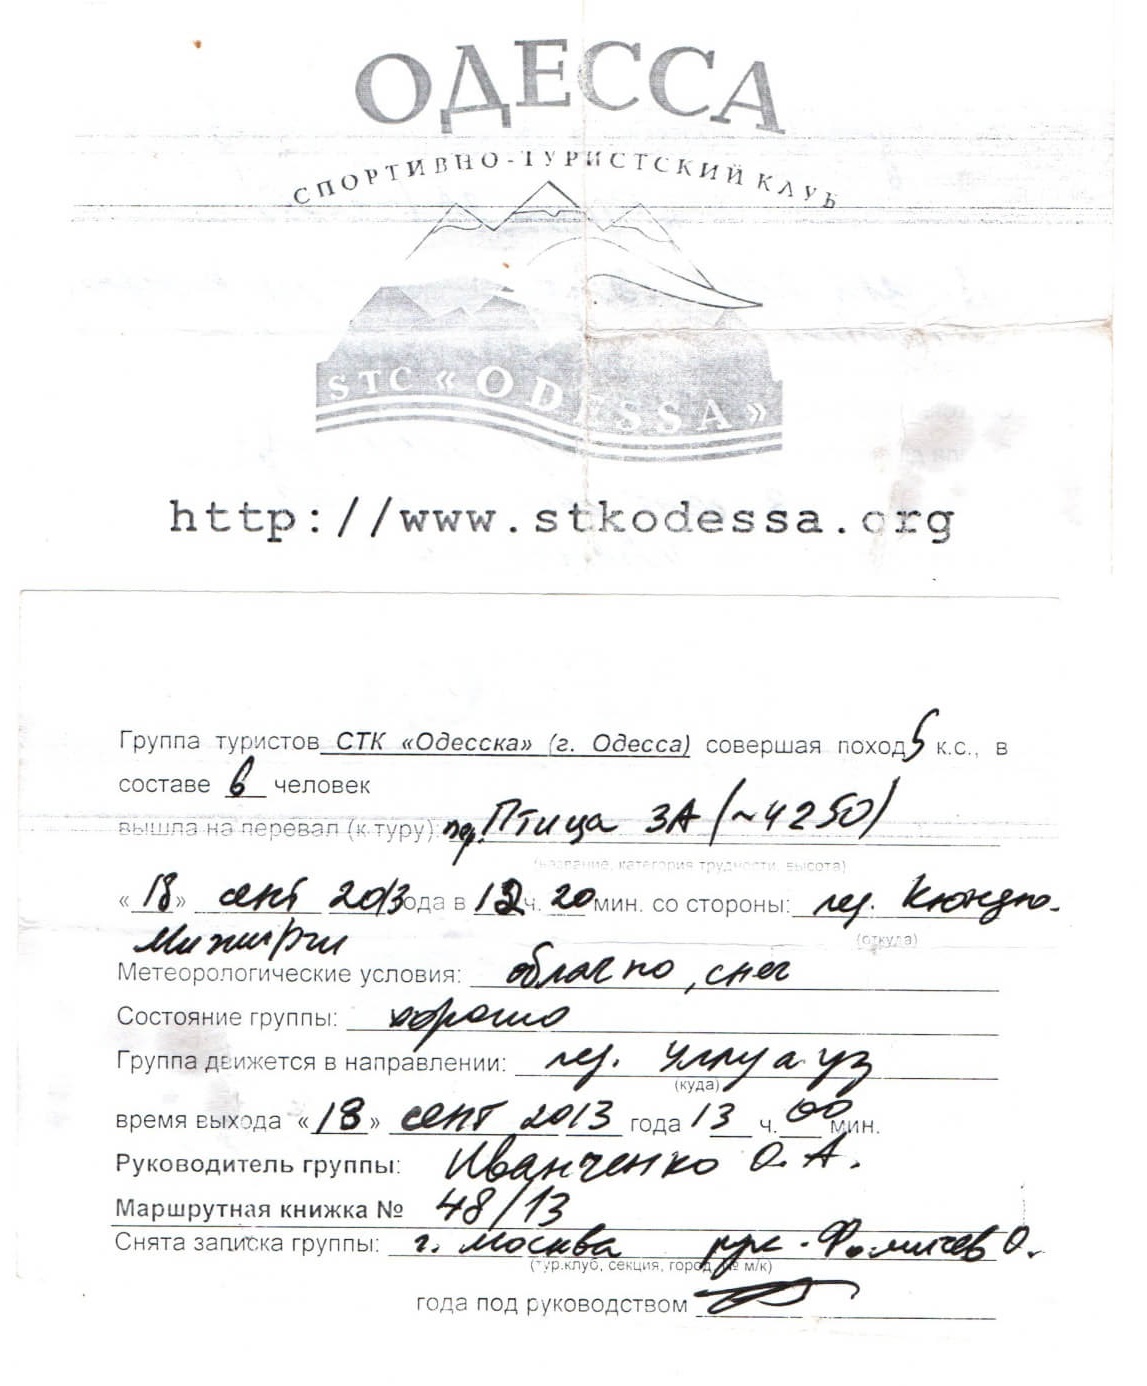 ОДЕССА
СПОРТИВНО-ТУРИСТСКИЙ КЛУБ
STC «ODESSA»
http://www.stkodessa.org
Группа туристов СТК «Одесска» (г. Одесса) совершая поход 5 к.с., в
составе 6 человек
вышла на перевал (к туру): пер. Птица 3А (~4250)
(название, категория трудности, высота)
«18» сент 2013 года в 12 ч. 20 мин. со стороны: пер. Кюндюм-
Мижирги
(откуда)
Метеорологические условия: облачно, снег
Состояние группы: хорошо
Группа движется в направлении: пер. Уллуауз
(куда)
время выхода «18» сент 2013 года 13 ч. 00 мин.
Руководитель группы: Иванченко О. А.
Маршрутная книжка № 48/13
Снята записка группы: г. Москва рук. Фомичев О.
(тур.клуб, секция, город, № м/к)
года под руководством